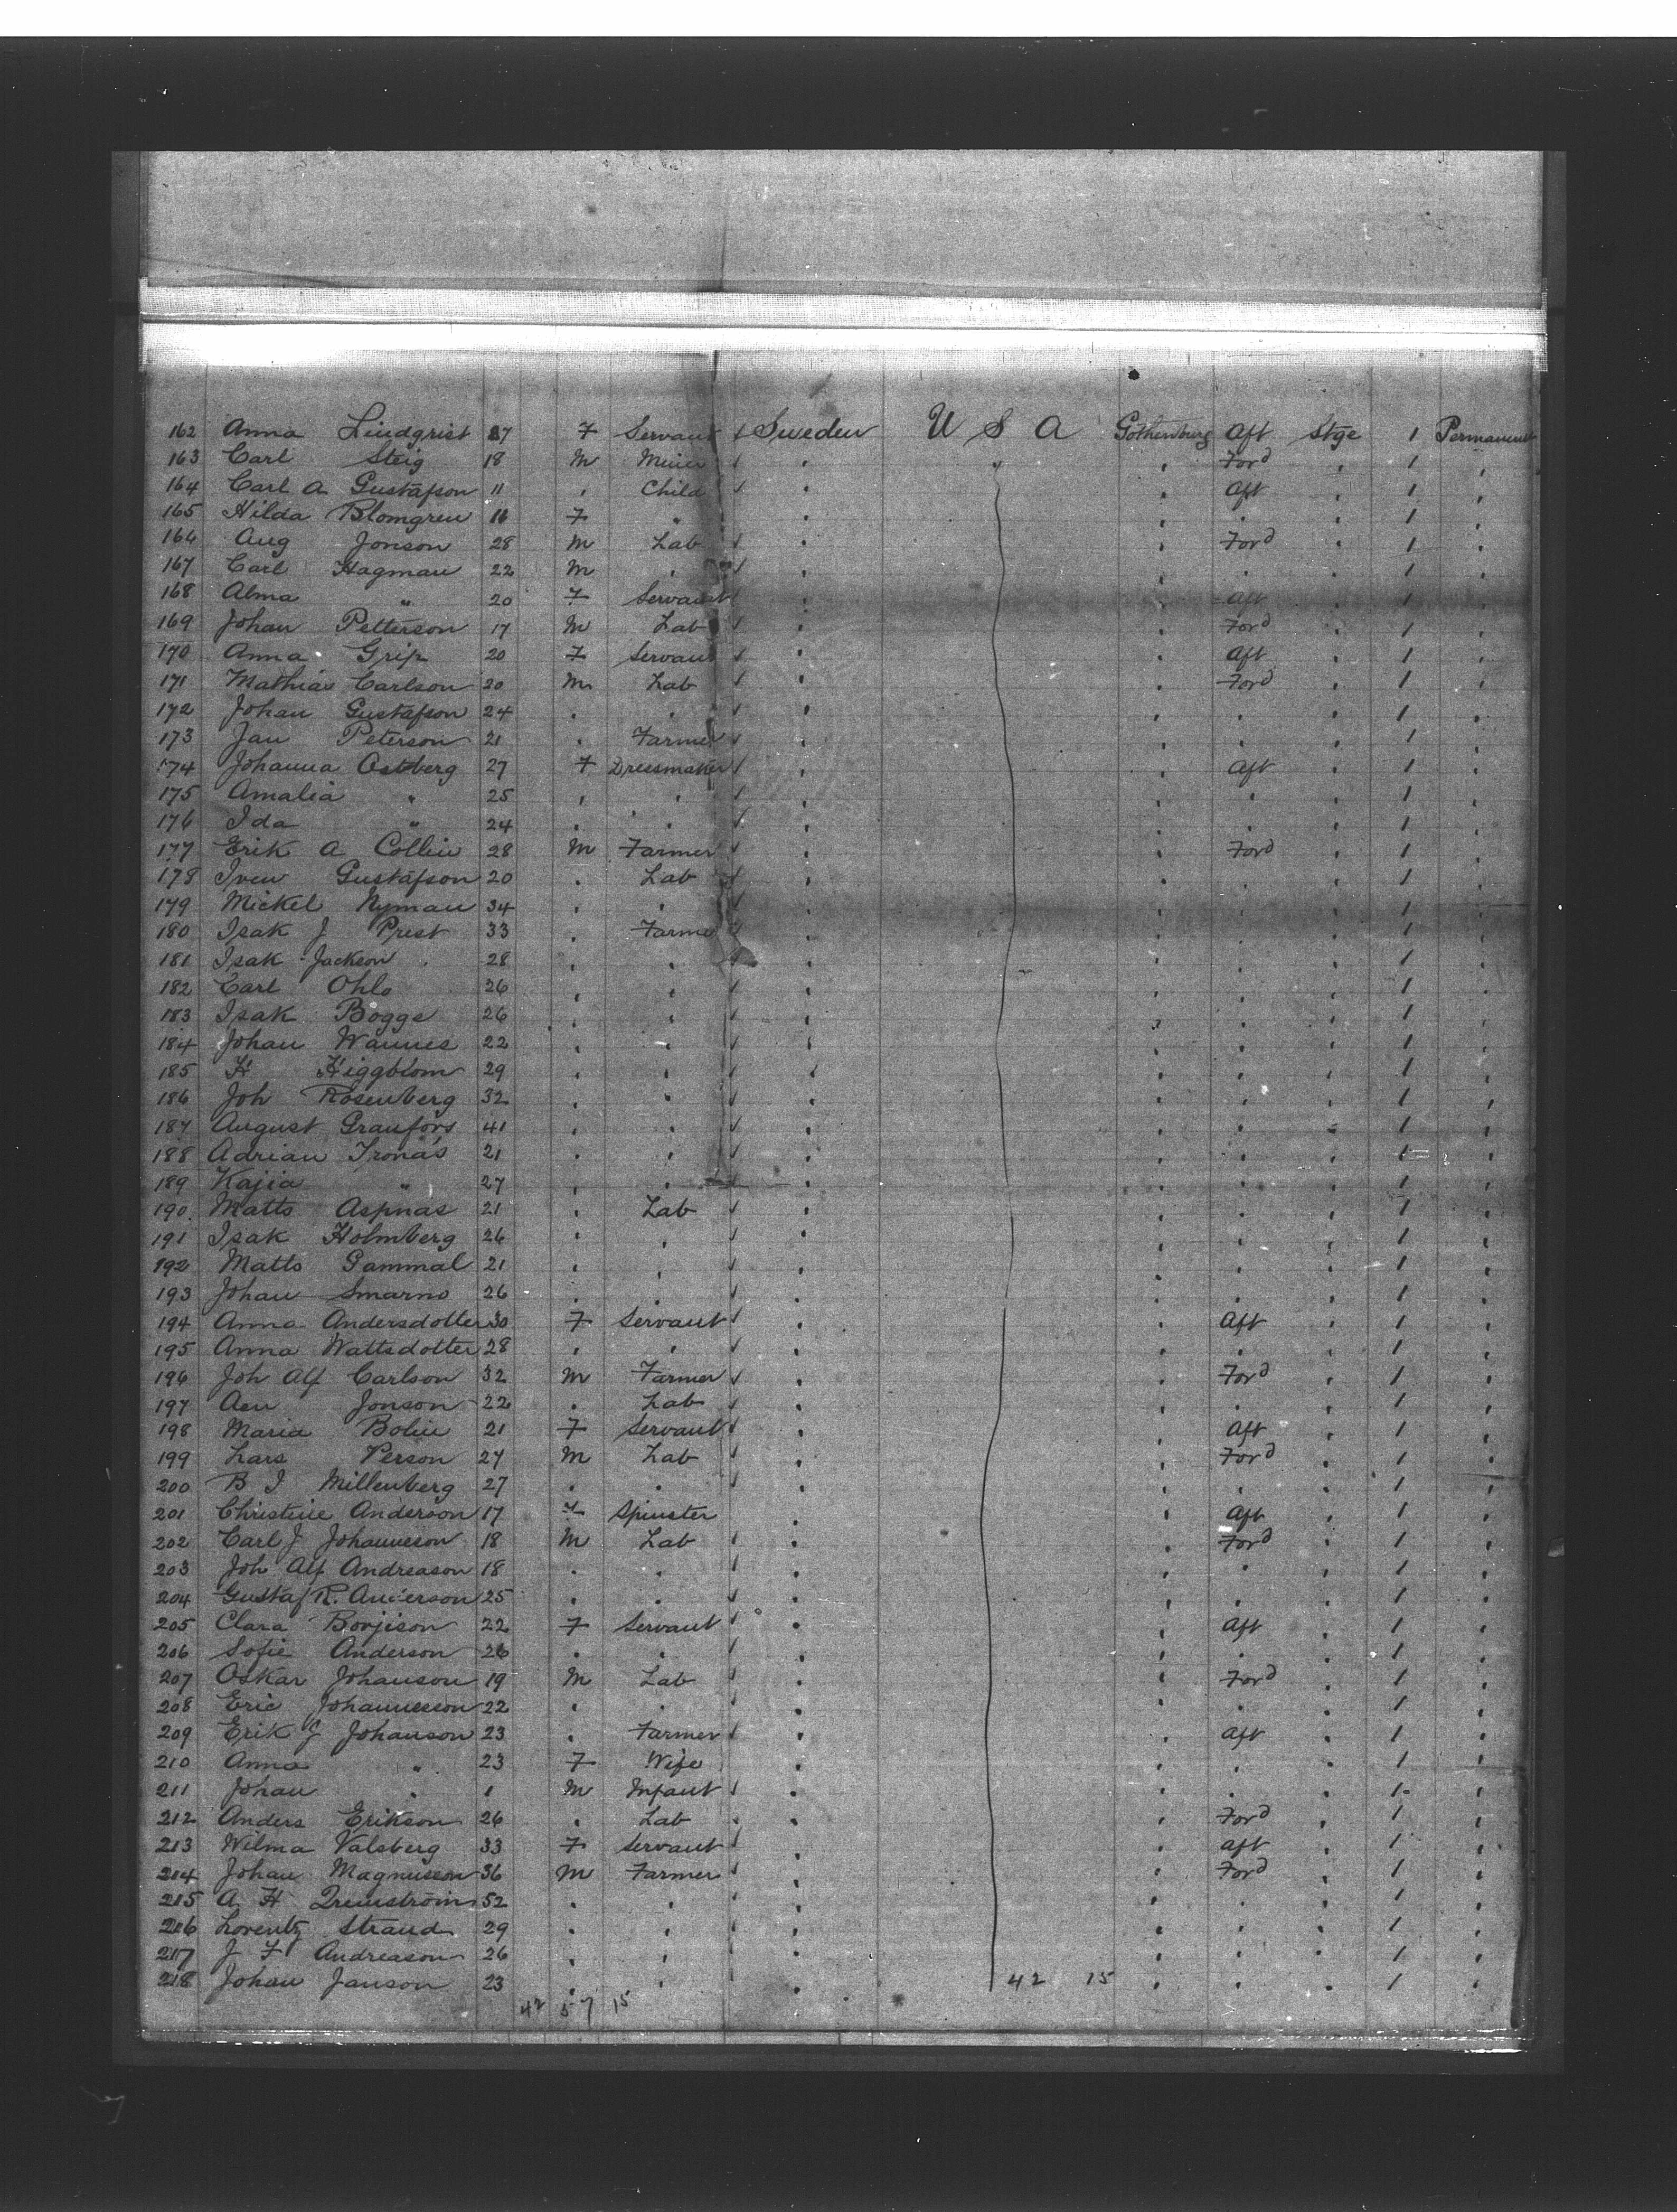 162 Anna Lindgrist 27 F Servant Sweden U S A Gothenburg Aft Stge 1 Permanent
163 Carl Steig 18 M Miner " " " Ford " 1 "
164 Carl A Gustafson 11 " Child " " Aft " 1 "
165 Hilda Blomgren 16 F " " " " " 1 "
166 Aug Jonson 28 M Lab " " Ford " 1 "
167 Carl Hagman 22 M " " " " " 1 "
168 Alma " 20 F Servant " " Aft " 1 "
169 Johan Petterson 17 M Lab " " Ford " 1 "
170 Anna Grip 20 F Servant " " Aft " 1 "
171 Mathias Carlson 20 M Lab " " Ford " 1 "
172 Johan Gustafson 24 " " " " " " 1 "
173 Jan Peterson 21 " Farmer " " " " 1 "
174 Johanna Ostberg 27 F Dressmaker " " Aft " 1 "
175 Amalia " 25 " " " " " " 1 "
176 Ida " 24 " " " " " " 1 "
177 Erik A Collin 28 M Farmer " " Ford " 1 "
178 Iven Gustafson 20 " Lab " " " " 1 "
179 Mickel Nyman 34 " " " " " " 1 "
180 Isak J Prest 33 " Farmer " " " " 1 "
181 Isak Jackson 28 " " " " " " 1 "
182 Carl Ohls 26 " " " " " " 1 "
183 Isak Bogge 26 " " " " " " 1 "
184 Johan Wannes 22 " " " " " " 1 "
185 H Higgblom 29 " " " " " " 1 "
186 Joh Rosenberg 32 " " " " " " 1 "
187 August Granfors 41 " " " " " " 1 "
188 Adrian Tronäs 21 " " " " " " 1 "
189 Kajia " 27 " " " " " " 1 "
190 Matts Aspnas 21 " Lab " " " " 1 "
191 Isak Holmberg 26 " " " " " " 1 "
192 Matts Gammal 21 " " " " " " 1 "
193 Johan Smarno 26 " " " " " " 1 "
194 Anna Andersdotter 30 F Servant " " Aft " 1 "
195 Anna Wattsdotter 28 " " " " " " 1 "
196 Joh Alf Carlson 32 M Farmer " " Ford " 1 "
197 Aen Jonson 22 " Lab " " " " 1 "
198 Maria Bolin 21 F Servant " " Aft " 1 "
199 Lars Person 27 M Lab " " Ford " 1 "
200 B I Millenberg 27 " " " " " " 1 "
201 Christine Anderson 17 F Spinster " " Aft " 1 "
202 Carl J Johanneson 18 M Lab " " Ford " 1 "
203 Joh Alf Andreason 18 " " " " " " 1 "
204 Gustaf R. Anderson 25 " " " " " " 1 "
205 Clara Borjison 22 F Servant " " Aft " 1 "
206 Sofie Anderson 26 " " " " " " 1 "
207 Oskar Johanson 19 M Lab " " Ford " 1 "
208 Eric Johannesson 22 " " " " " " 1 "
209 Erik G Johanson 23 " Farmer " " Aft " 1 "
210 Anna " 23 F Wife " " " " 1 "
211 Johan " 1 M Infant " " " " 1 "
212 Anders Erikson 26 " Lab " " Ford " 1 "
213 Wilma Valsberg 33 F Servant " " Aft " 1 "
214 Johan Magnusson 36 M Farmer " " Ford " 1 "
215 A H 52 " " " " " " 1 "
216 Lorentz Strand 29 " " " " " " 1 "
217 J F Andreason 26 " " " " " " 1 "
218 Johan Janson 23 " " " 42 15 " " " 1 "
42 57 15